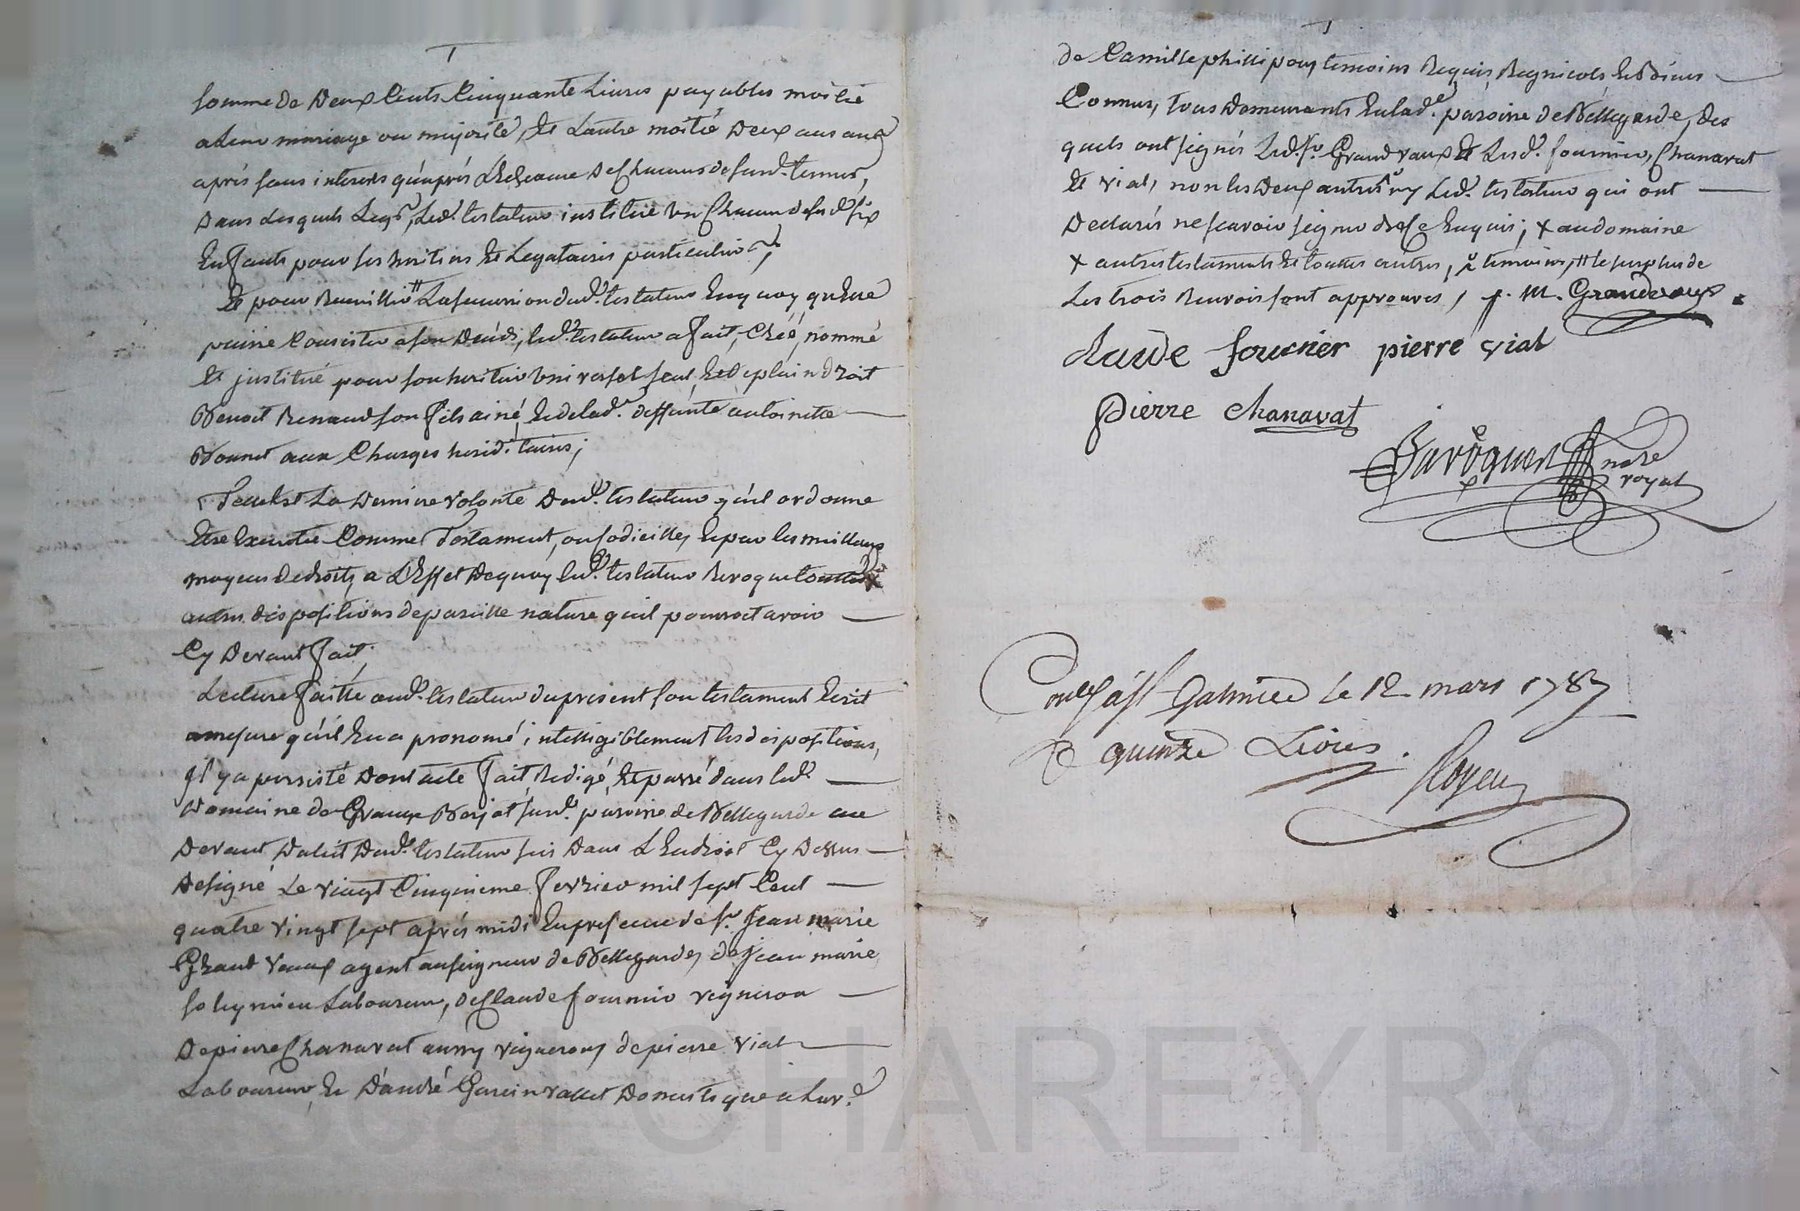 somme de Deux Cents Cinquante Livres payables moitié
a Leur mariage ou majorité, Et Lautre moitié Deux ans
après sans interets qu'après L'Echeance De Chacuns desusd. termes,
Dans Lesquels Legs, Led. testateur institue un Chacun desd. six
Enfants pour ses heritiers Et Legataires particuliers,
Et pour Recueillir # La succession dud. testateur Enquoy qu'Elle
puisse Consister a son Deceds, led. testateur a fait, Créé, nommé
Et justitué pour son heritier universel seul, Et de plain droit
Benoit Renaud son fils ainé, Et de lad. deffunte antoinette
Bonnet aux Charges herid.taires;
Telle Est La Derniere volonté Dud. testateur qu'il ordonne
Etre Executée Comme Testament, ou Codicille, Et par les meilleurs
moyens de droits, a L'Effet Dequoy led. testateur Revoque toutes x
autres dispositions de pareille nature qu'il pourroit avoir
Cy Devant fait;
Lecture faitte aud. testateur du present son testament Ecrit
amesure qu'il En a pronomé, intelligiblement les dispositions,
Il y a persisté Dont acte fait, Redigé, Et passé dans led.
Domaine de Grange Borjat susd. paroisse de Bellegarde au
Devant Dulit Dud. testateur sis Dans L'Endroit Cy Dessus
Designé Le vingt Cinquieme fevrier mil sept Cent
quatre vingt sept après midi En presence de Sr. Jean marie
Grand vaux agent au seigneur de Bellegarde, de Jean marie
Soleymieu Laboureur, de Claude fournier vigneron
De pierre Chanavat aussy vigneron, de pierre Vial
Laboureur, Et D'andré Garin vallet Domestique a Lud.
de Camille philippon, temoins Requis Regnicoles Et Bien
Connus, tous Demeurants En lad. paroisse de Bellegarde, des
quels ont signés Led. Sr. Grand vaux Et Lesd. fournier, Chanavat
Et vial, non les Deux autres ny Led. testateur qui ont
Declarés ne scavoir signer de ce Enquis; x au domaine
x autres testaments Et toutes autres, temoins, # le surplus de
Les trois Renvois sont approuvés, j. m. Grandvaux.
claude fournier pierre vial
pierre chanavat
nore
royal
Conllé a St Galmier le 12 mars 1787
R quinze Livres.